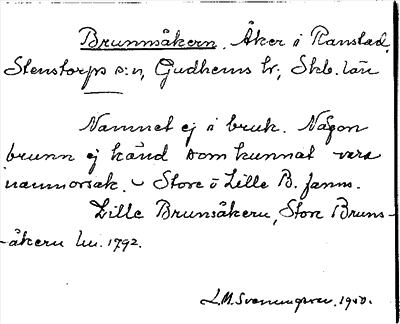 Brunnsåkern. Åker i Ranstad,
Stenstorps s:n, Gudhems hr; Skb. län
Namnet ej i bruk. Någon
brunn ej känd som kunnat vara
namnorsak. Store o Lille B. fanns.
Lille Brunsåkern, Store Bruns-
-åkern lm. 1792.
L.M. Svenungsson. 1940.